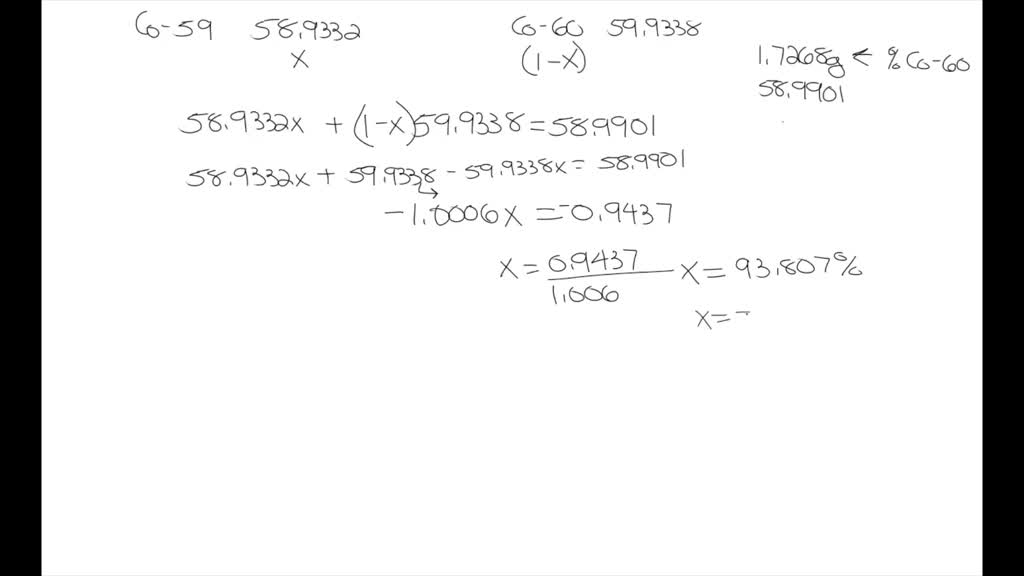 Co-59 58.9332 Co-60 59.9338
x (1-x)
1.7268g ← % Co-60
58.9901
58.9332x + (1-x)59.9338 = 58.9901
58.9332x + 59.9338 - 59.9338x = 58.9901
-1.0006x = -0.9437
x = 0.9437 x = 93.807%
1.006
x = -